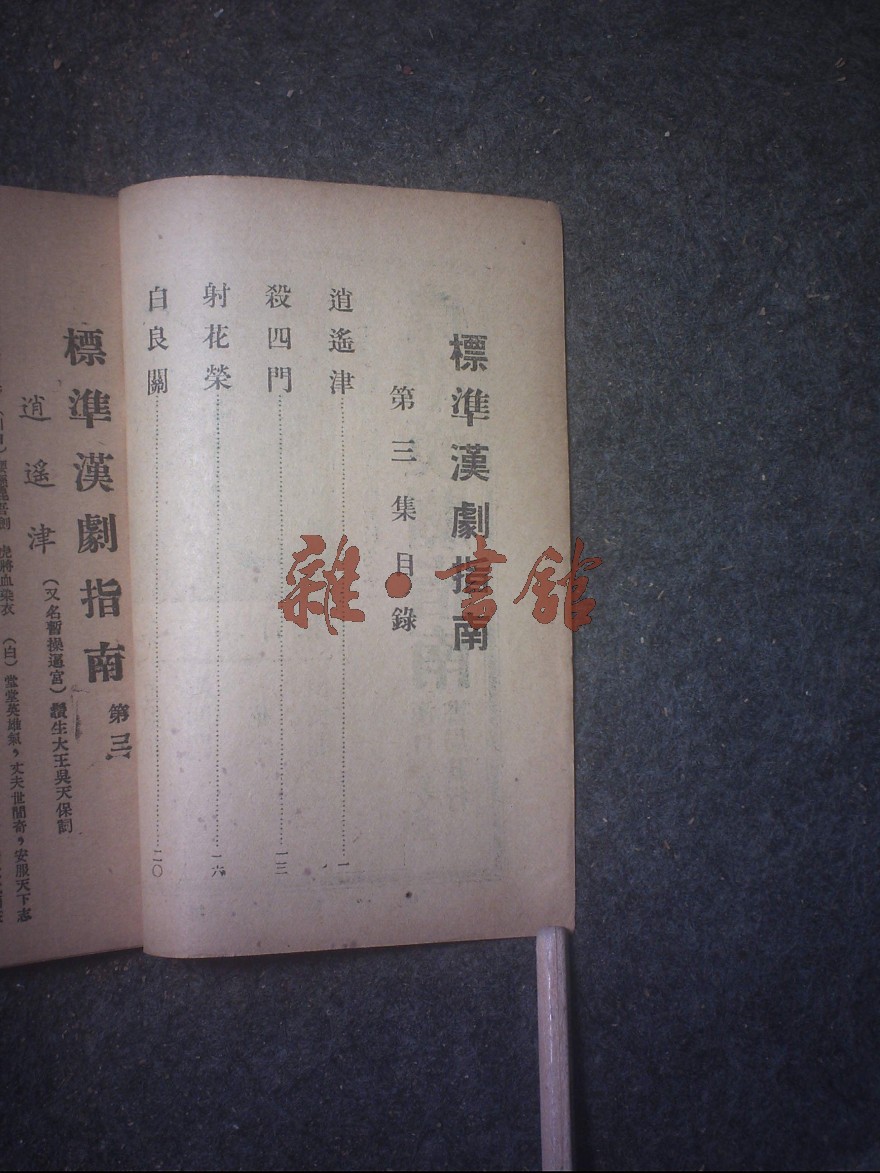 標準漢劇指南
第三集目錄
逍遙津……一
殺四門……一三
射花榮……一六
白良關……二〇
雜·書館
標準漢劇指南 第三
逍遙津
(又名暫操逼宮)鬚生大王吳天保詞
虎將血染衣 (白)堂堂英雄氣,丈夫世間奇,安服天下志